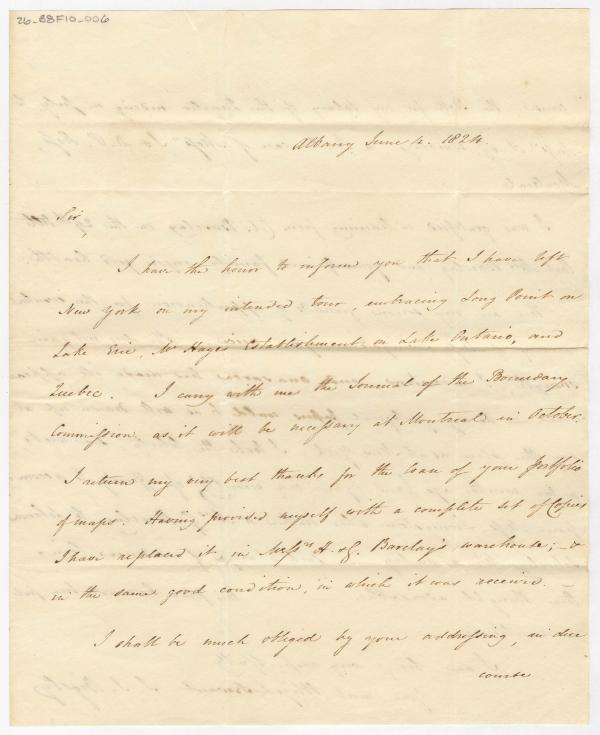 26_88F10_006
Albany June 4. 1824.
Sir,
I have the honor to inform you that I have left
New York on my intended tour, embracing Long Point on
Lake Erie, Mr Hayes Establishment on Lake Ontario, and
Quebec. I carry with me the Journal of the Boundary
Commission, as it will be necessary at Montreal in October.
I return my very best thanks for the loan of your portfolio
of maps. Having provided myself with a complete set of Copies
I have replaced it, in Messrs H. & G. Barclay's warehouse; - &
in the same good condition, in which it was received. -
I shall be much obliged by your addressing, in due
course